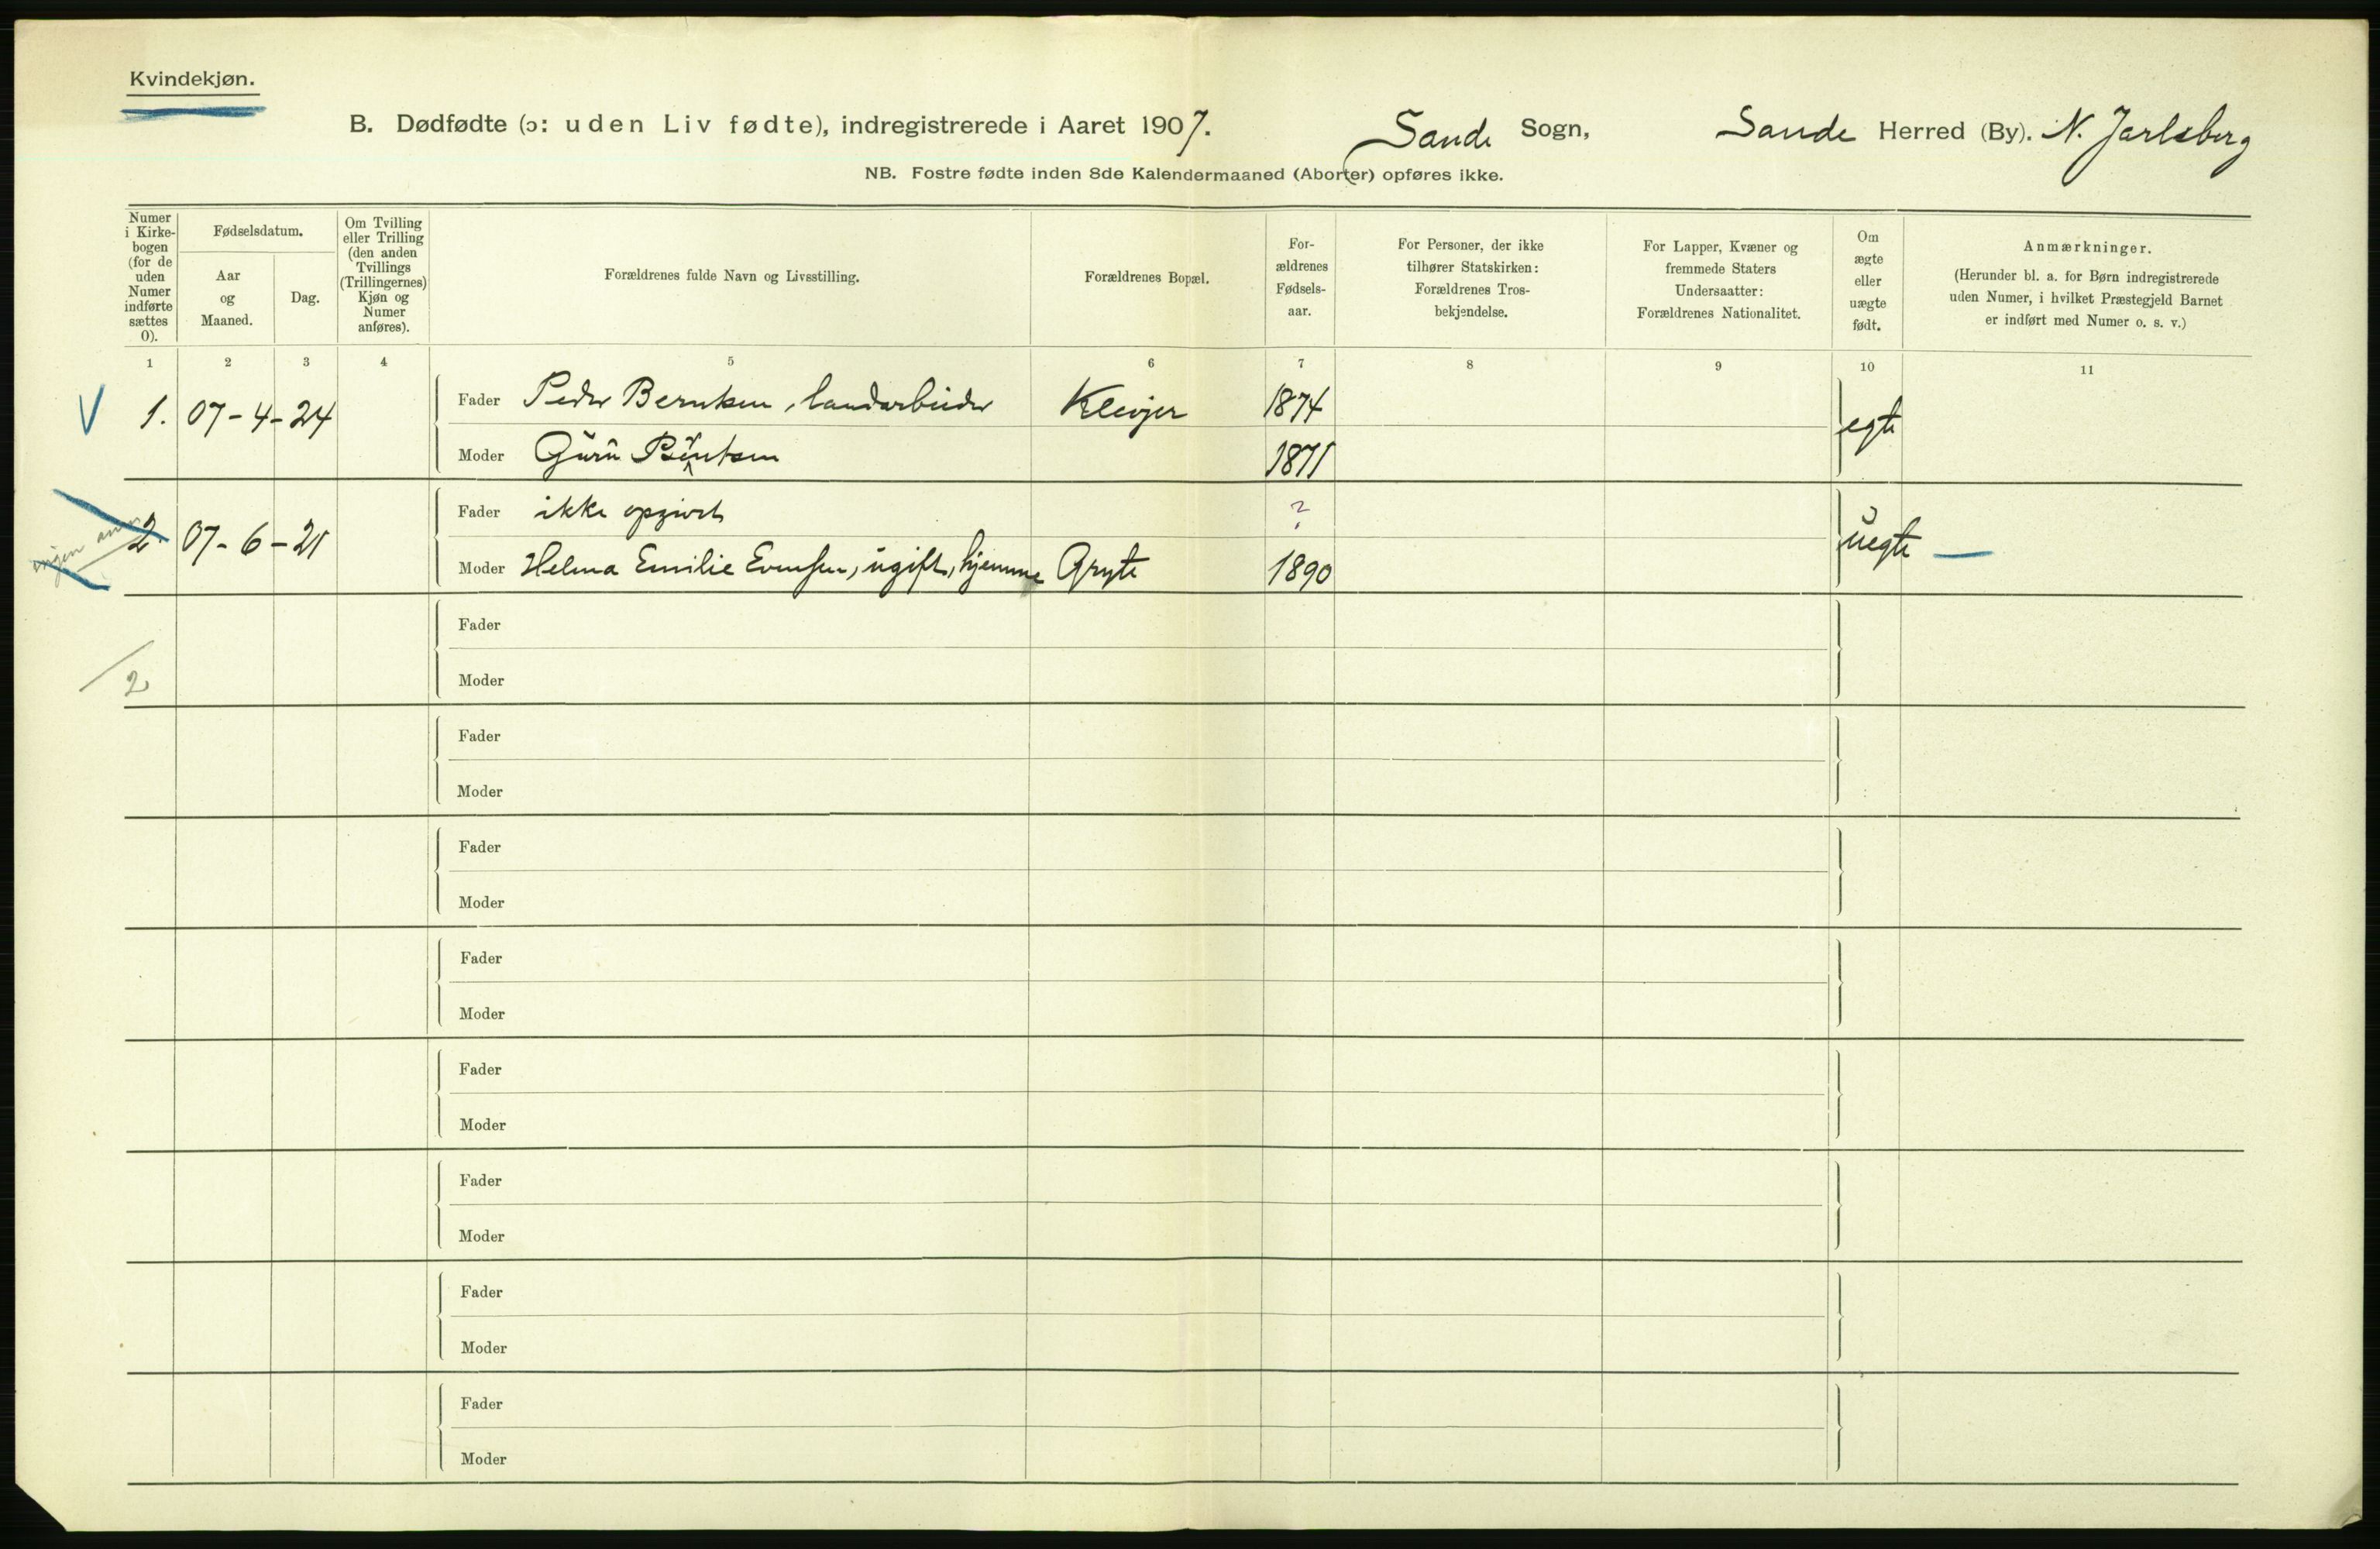 Kvindekjøn.
B. Dødfødte (ɔ: uden Liv fødte), indregistrerede i Aaret 1907. Sande Sogn, Sande Herred (By). N. Jarlsberg
NB. Fostre fødte inden 8de Kalendermaaned (Aborter) opføres ikke.
Numer i Kirkebogen (for de uden Numer indførte sættes 0).
Fødselsdatum.
Aar og Maaned.
Dag.
Om Tvilling eller Trilling (den anden Tvillings (Trillingernes) Kjøn og Numer anføres).
Forældrenes fulde Navn og Livsstilling.
Forældrenes Bopæl.
For-
ældrenes
Fødsels-
aar.
For Personer, der ikke
tilhører Statskirken:
Forældrenes Tros-
bekjendelse.
For Lapper, Kvæner og
fremmede Staters
Undersaatter:
Forældrenes Nationalitet.
Om
ægte
eller
uægte
født.
Anmærkninger.
(Herunder bl. a. for Børn indregistrerede
uden Numer, i hvilket Præstegjeld Barnet
er indført med Numer o. s. v.)
1 2 3 4 5 6 7 8 9 10 11
V 1. 07-4-24 Fader Peder Berntsen, landarbeider 1874 egte
Moder Guru 1871
2. 07-6-21 Fader ikke opgivet ? uegte —
Moder Helma Emilie Evensen, ugift, hjemme Gryte 1890
Fader
2 Moder
Fader
Moder
Fader
Moder
Fader
Moder
Fader
Moder
Fader
Moder
Fader
Moder
Fader
Moder